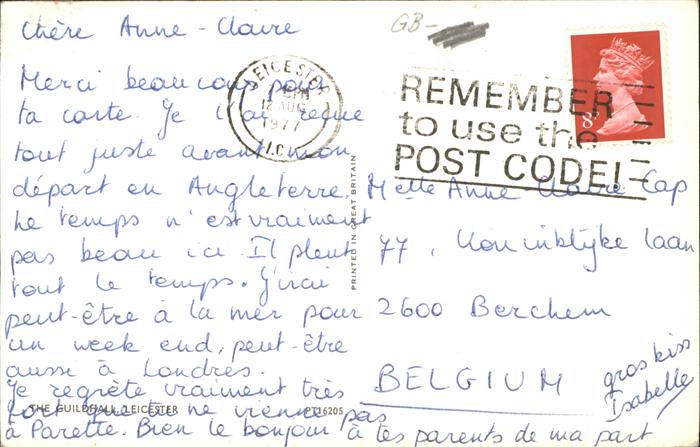 Chère Anne-Claire
GB-
Merci beaucoup pour
ta carte. Je l'ai reçue
tout juste avant mon
départ en Angleterre.
Le temps n'est vraiment
pas beau ici. Il pleut
tout le temps. J'irai
peut-être à la mer pour
un week end, peut-être
aussi à Londres.
Je regrète vraiment très
fort que tu ne viennes pas
à Parette. Bien le bonjour à tes parents de ma part
gros kiss
Isabelle
LEICESTER
PM
12 AUG
1977
REMEMBER
to use the
POST CODE!
8
PRINTED IN GREAT BRITAIN
Melle Anne Claire Cap
77, Koninklijke laan
2600 Berchem
BELGIUM
THE GUILDHALL, LEICESTER
PT16205